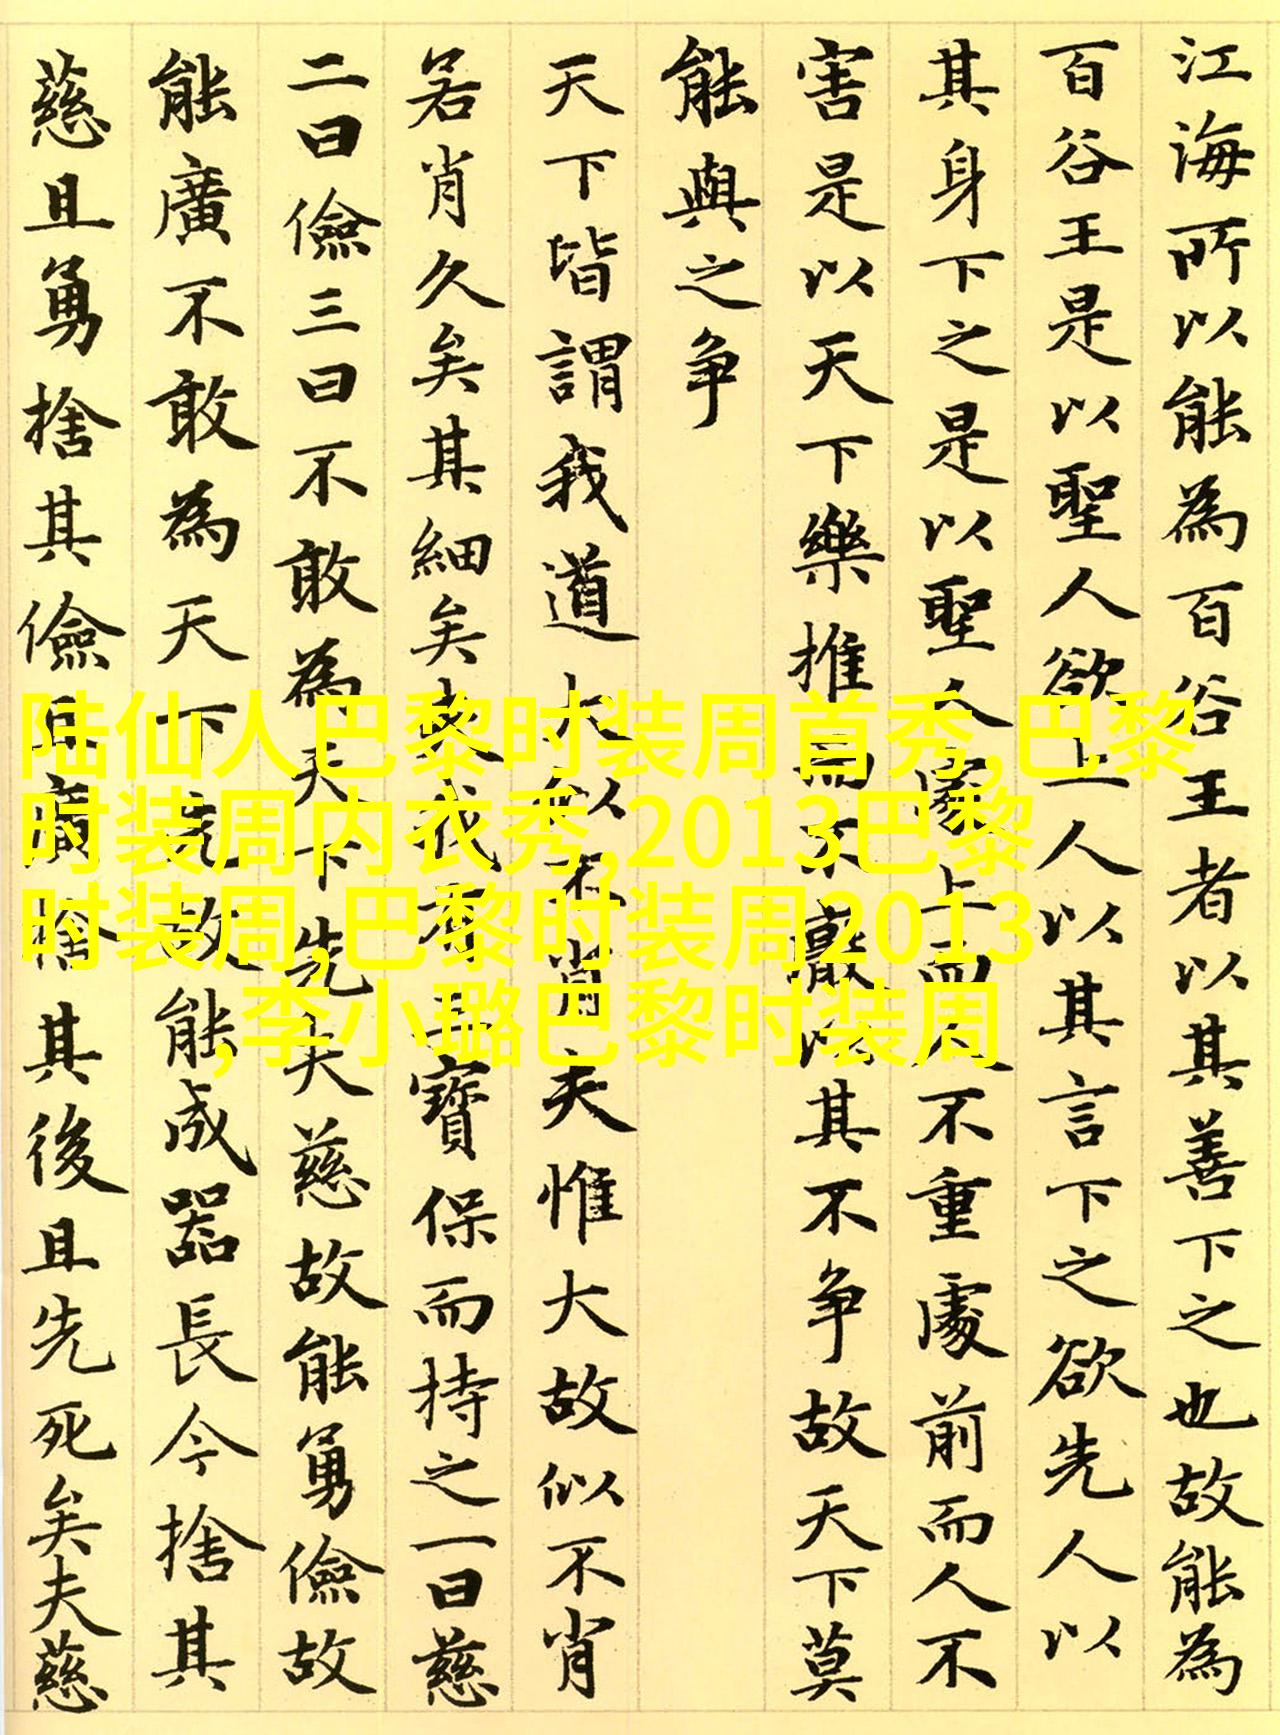 江海所以能為百谷王者以其善下之也故能為
百谷王是以聖人欲上人以其言下之欲先人以
其身下之是以聖人處上而人不重處前而人不
害是以天下樂推而不厭以其不争故天下莫
能與之争
天下皆謂我道大似不肖夫惟大故似不肖
若肖久矣其細矣夫我有三寶保而持之一曰慈
二曰儉三曰不敢為天下先夫慈故能勇儉故
能廣不敢為天下先故能成器長今捨其
慈且勇捨其儉且廣捨其後且先死矣夫慈
陆仙人巴黎时装周首秀,巴黎
时装周内衣秀,2013巴黎
时装周,巴黎时装周2013
,李小璐巴黎时装周